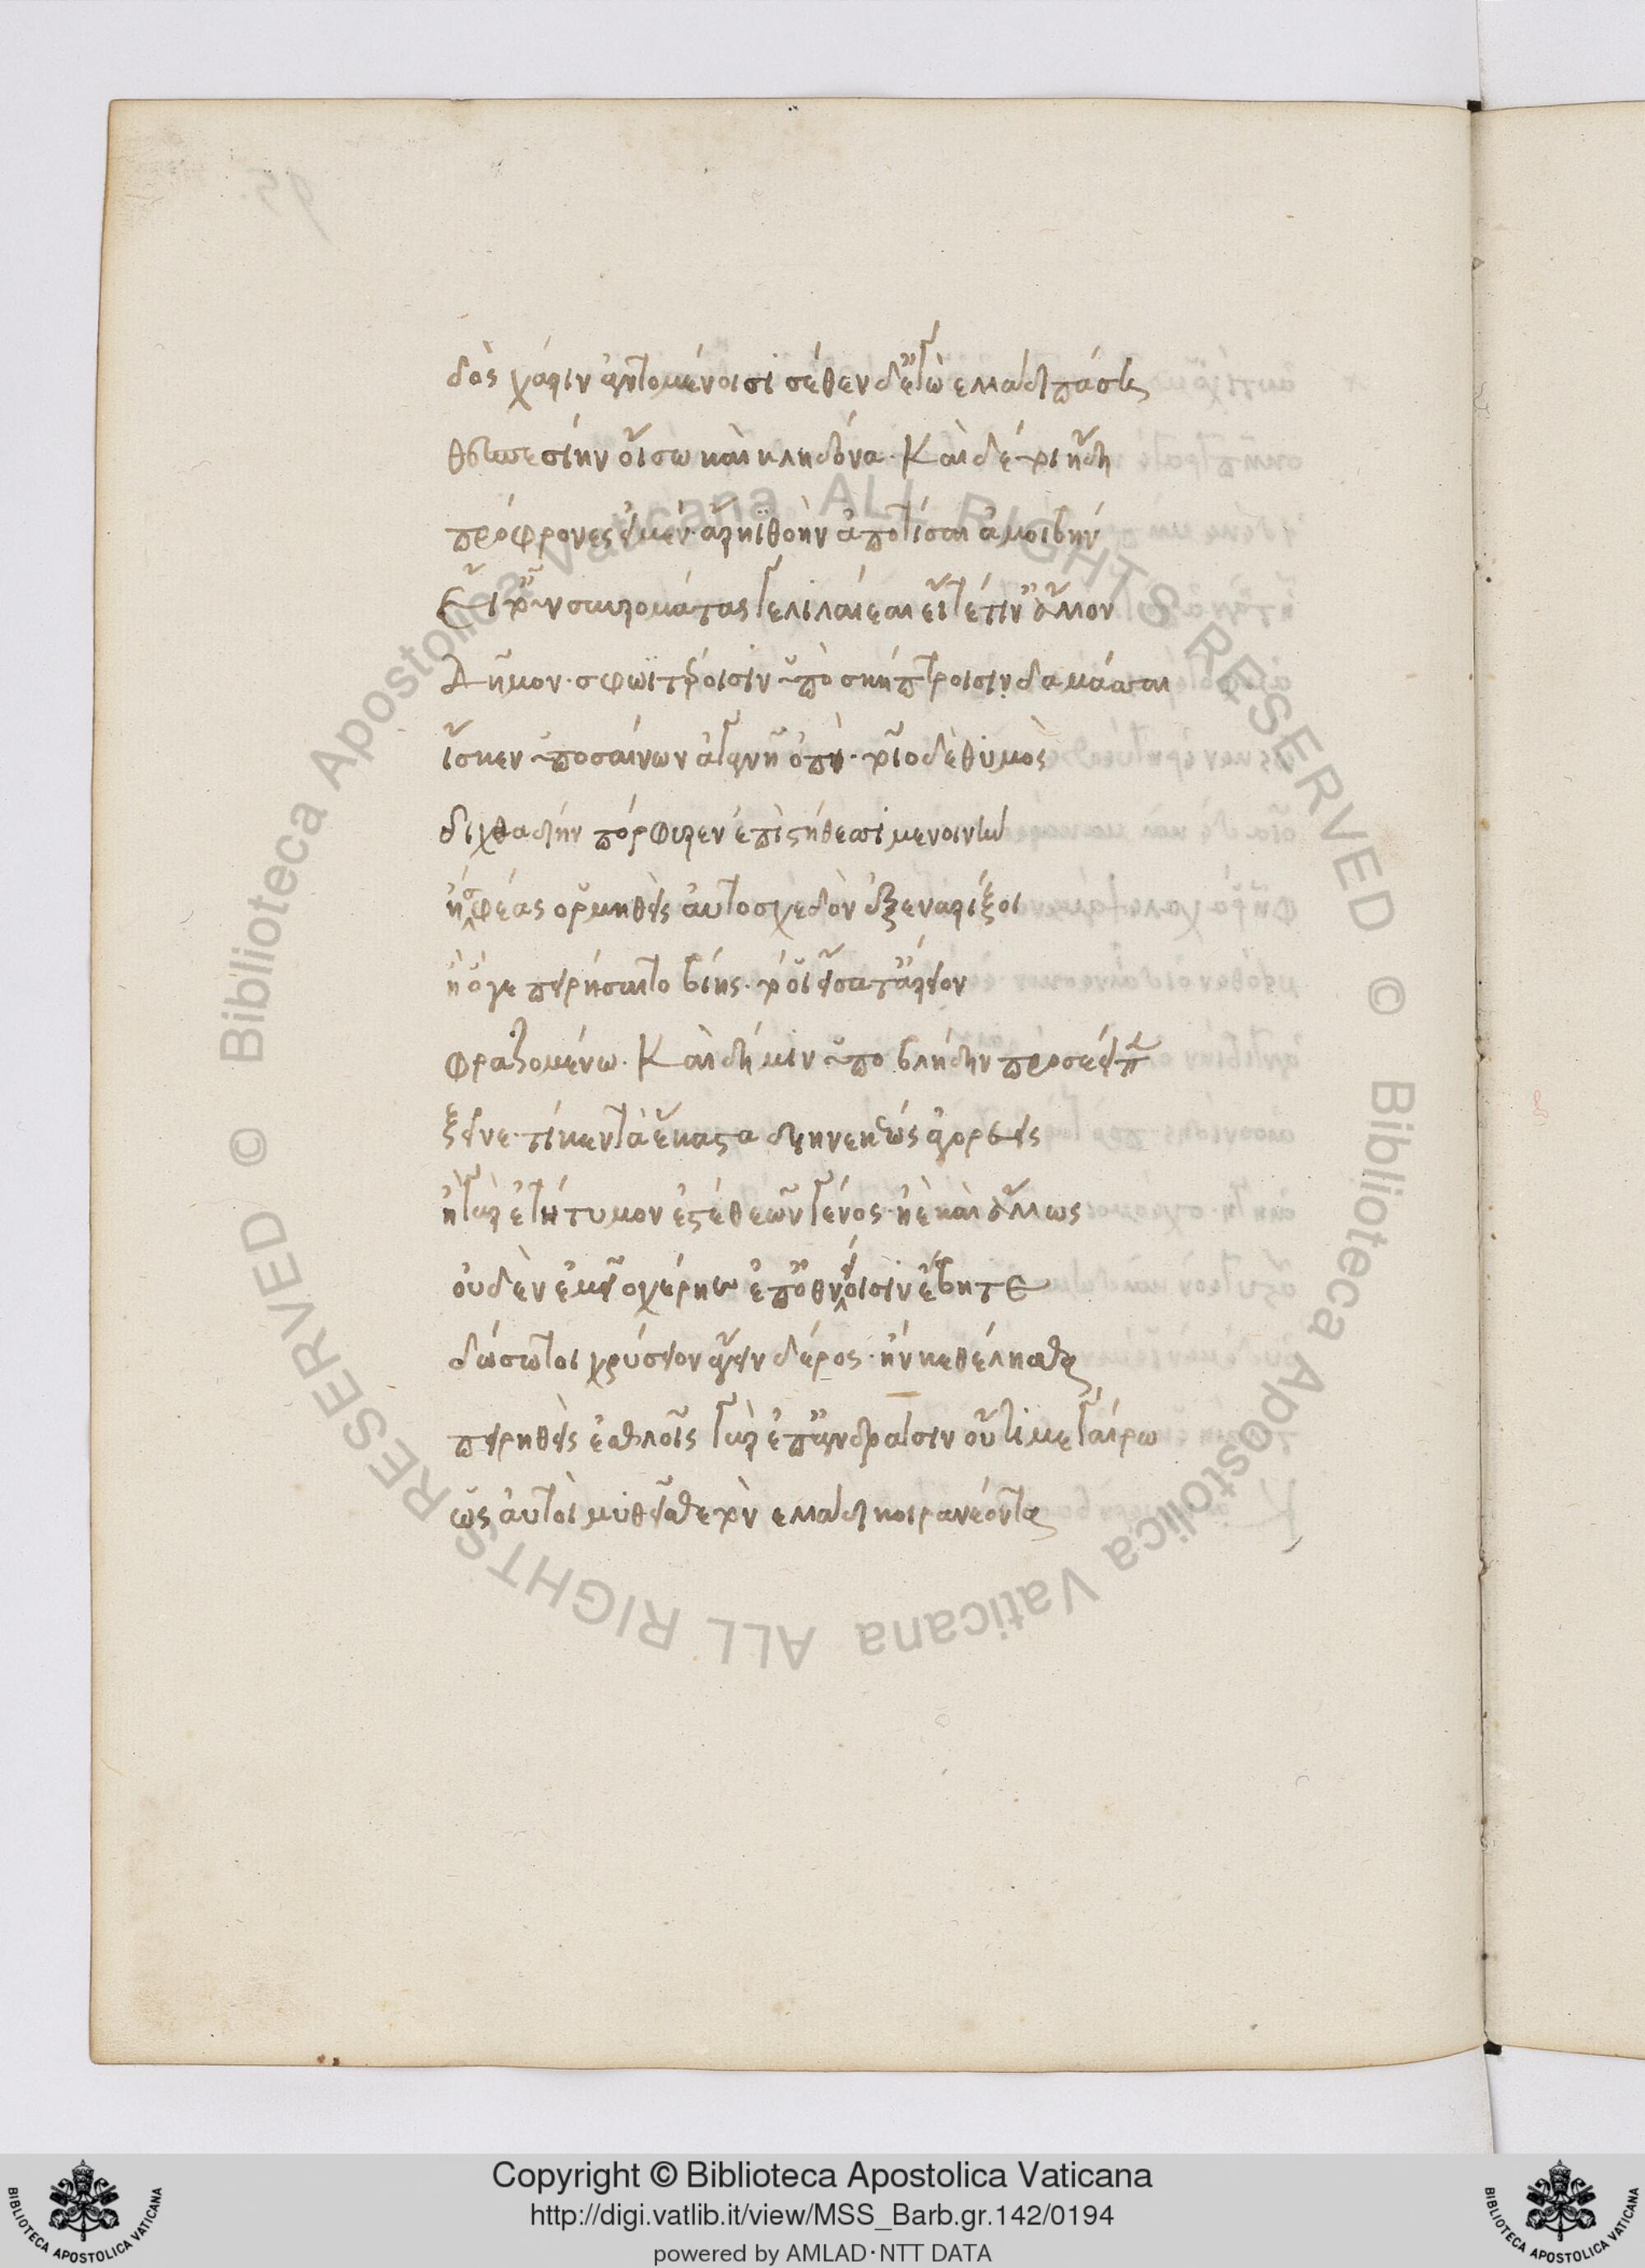 δὸς χάριν ἀντομένοισι σέθεν δ' ἐγὼ ἑλλάδι πάσῃ
θεσπεσίην οἴσω καὶ κληδόνα. Καὶ δέ τοι ἤδη
πρόφρονες εἰμέν. ἄρηϊ θοὴν ἀποτίσαι ἀμοιβήν
Εἴτ' οὖν σαυρομάτας γε λιλαίεαι εἴτέ τιν' ἄλλον
Δῆμον. σφωϊτέροισιν ὑπὸ σκήπτροισιν δαμάσσαι
ἴσκεν ὑποσαίνων ἀγανῆ ὀπὶ. τοῖο δὲ θυμὸς
διχθαδίην πόρφυρεν ἐπὶ στήθεσσι μενοινὴν
ἤ σφέας ὁρμηθεὶς αὐτοσχεδὸν ἐξεναρίζοι
ἢ ὅγε πειρήσαιτο βίης. τό οἱ εἴσατ' ἄρειον
φραζομένω. Καὶ δή μιν ὑποβλήδην προσέειπε
ξεῖνε. τί κεν τὰ ἕκαστα διηνεκέως ἀγορεύεις
ἢ γὰρ ἐτήτυμον ἐστὲ θεῶν γένος. ἠὲ καὶ ἄλλως
οὐδὲν ἐμεῖο χέρηες ἐπ' ὀθνείοισιν ἔβητε
δώσω τοι χρύσειον ἄγειν δέρος. ἤν κ' ἐθέλησθα
πειρηθεὶς ἐσθλοῖς γὰρ ἐπ' ἀνδράσιν οὔτι μεγαίρω
ὡς αὐτοὶ μυθεῖσθε τὸν ἑλλάδι κοιρανέοντα
Copyright © Biblioteca Apostolica Vaticana
http://digi.vatlib.it/view/MSS_Barb.gr.142/0194
powered by AMLAD·NTT DATA